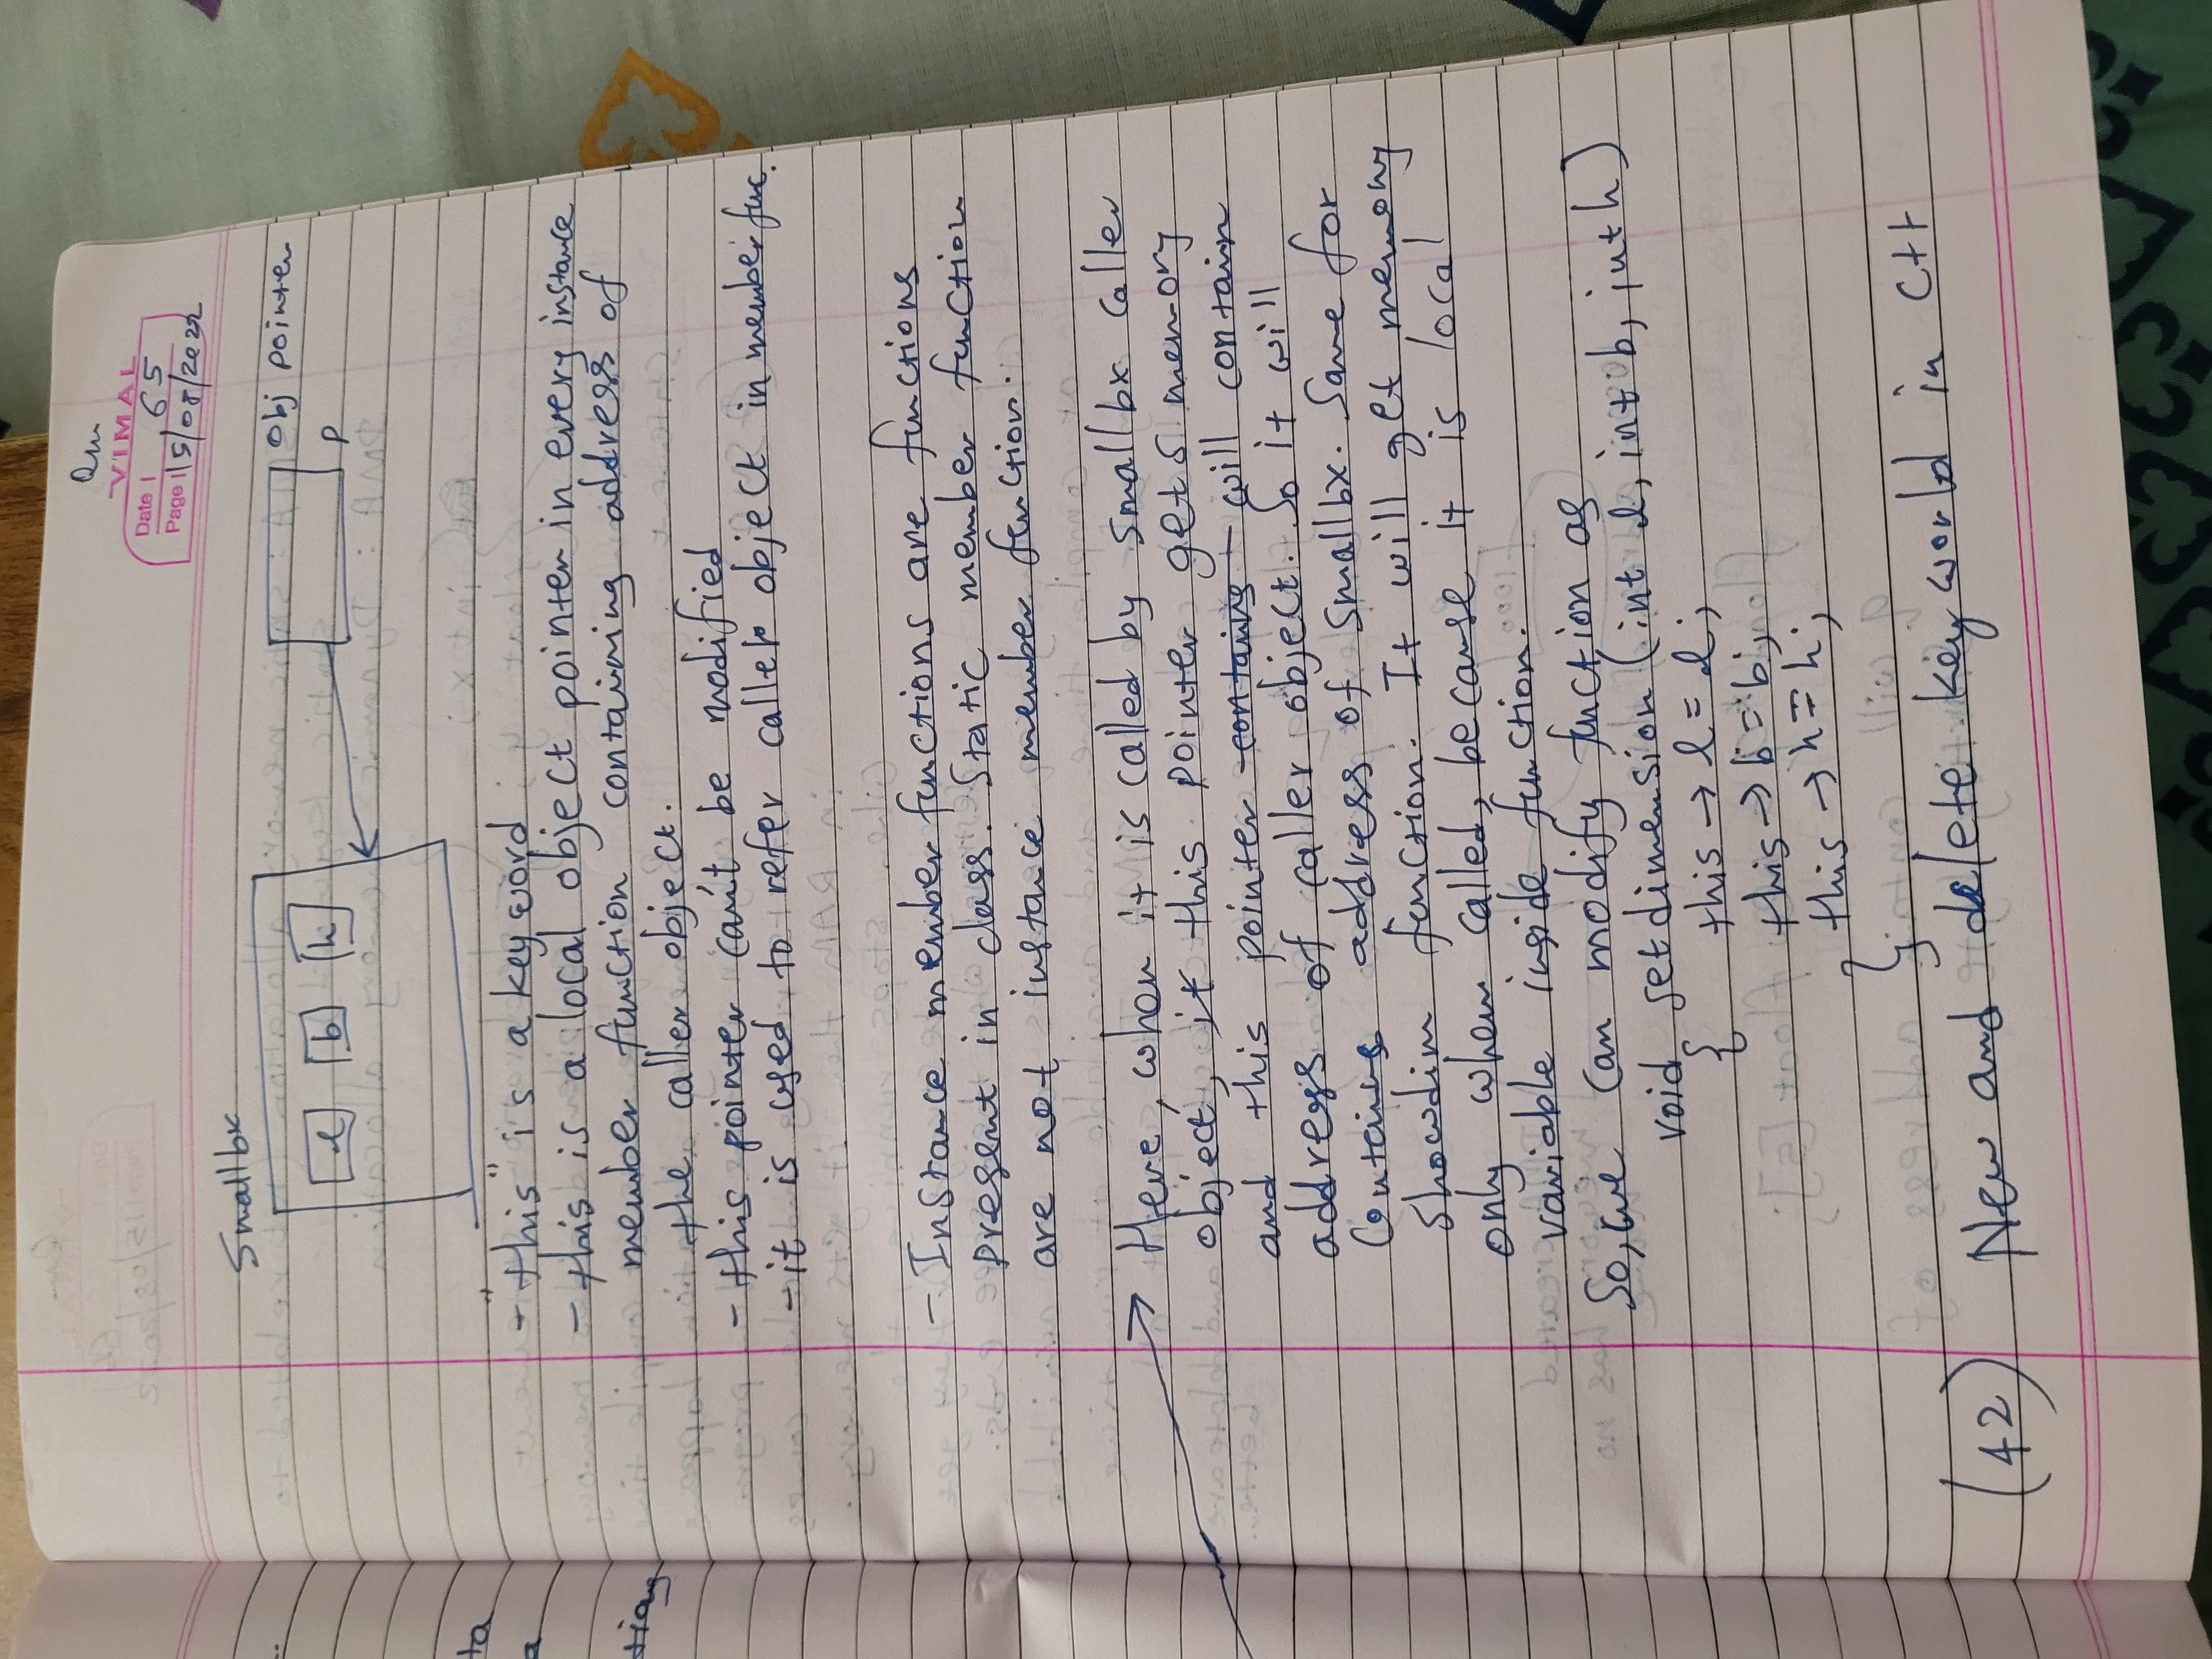 Om
VIMAL
Date 65
Page 15/08/2022
Smallbx
l b h
obj pointer
p
- "this" is a keyword
- this is a local object pointer in every instance
member function containing address of
the caller object.
- this pointer can't be modified
- it is used to refer caller object in member func.
- Instance member functions are functions
present in class. Static member function
are not instance member function.
→ Here, when it is called by smallbx caller
object, it this pointer gets memory
and this pointer contains will contain
address of caller object. So it will
Contains address of smallbx. Same for
showdim function. It will get memory
only when called, because it is local
variable inside function.
So, we can modify function as
void setdimension (int l, int b, int h)
{ this → l = l;
this → b = b;
this → h = h;
}
(42) New and delete keyworld in C++
ta
a